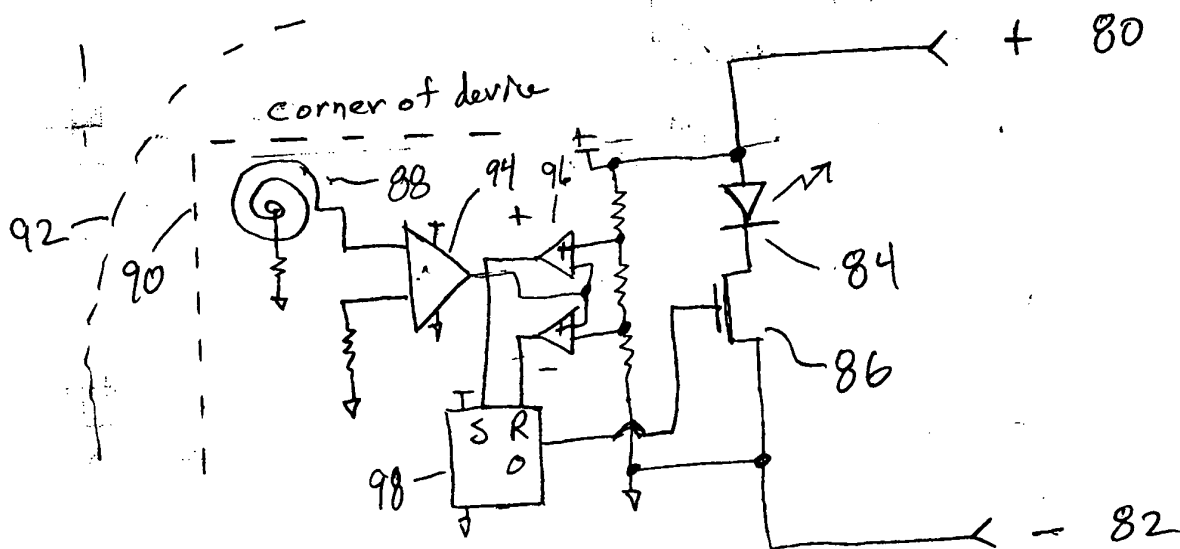 + 80
corner of device
+
88
94
96
+
92
90
84
+
+
-
86
S R
O
98
- 82